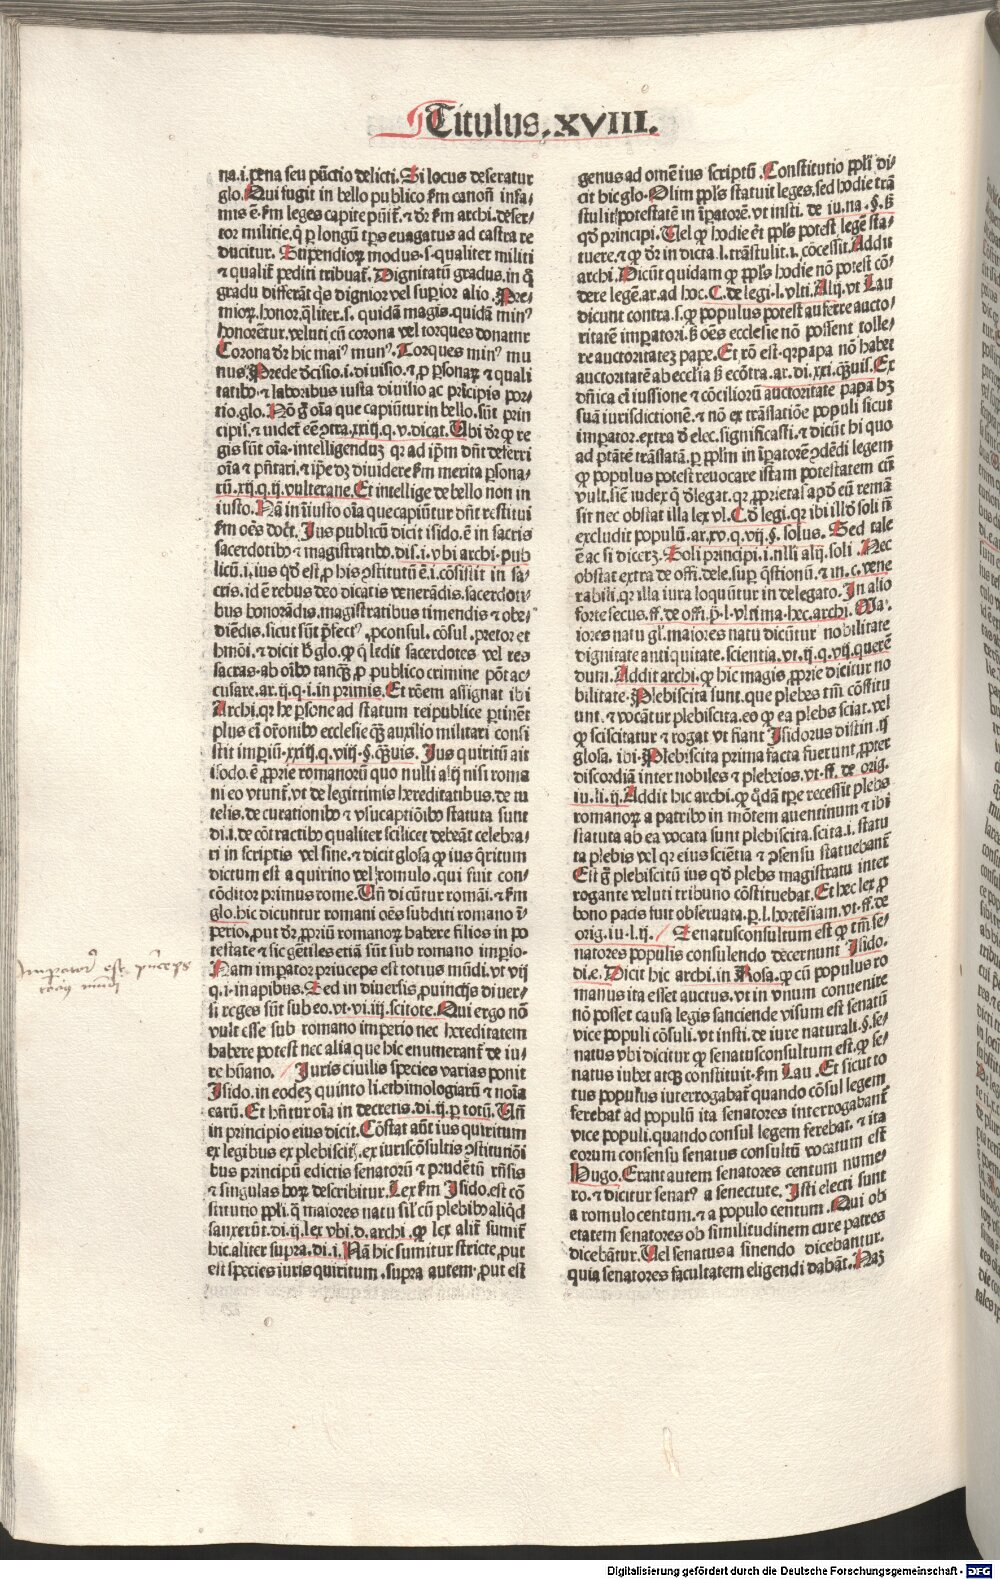 Titulus.XVIII.
na.i.pena seu pūctio delicti.Si locus deseratur
glo.Qui fugit in bello publico ẜm canon̄ infa⸗
mis ē.ẜm leges capite pūit᷑.⁊ dr̄ ẜm archi.deser⸗
tor militie.q̇ ꝑ longū tꝑs euagatus ad castra re
ducitur. Stipendioꝝ modus.s.qualiter militi
⁊ qualit᷑ pediti tribuat᷑.Dignitatū gradus.in q̊
gradu differāt q̇s dignior vel suꝑior alio.Pre⸗
mioꝝ.honor.q̄liter.s.quidā magis.quidā minꝰ
honorētur.veluti cū corona vel torques donatur
Corona dr̄ hic maiꝰ munꝰ.Torques minꝰ mu
nus.Prede dc̄isio.i.diuisio.⁊ ꝓ ꝑsonaꝝ ⁊ quali
tatibꝰ.⁊ laboribus iusta diuisio ac prīcipis por⸗
tio.glo.Nō g̊ oīa que capiūtur in bello.sūt prin
cipis.⁊ videt᷑ eē ꝯtra.xxiij.q.v.dicat.Ubi dr̄ ꝙ re
gis sūt oīa.intelligenduꝫ qꝛ ad ip̄m dn̄t deferri
oīa ⁊ pn̄tari.⁊ ip̄e dꝫ diuidere ẜm merita ꝑsona⸗
rū.xij.q.ij.vulterane.Et intellige de bello non in
iusto.Nā in īiusto oīa que capiūtur dn̄t restitui
ẜm oēs doct᷑. Ius publicū dicit isido.ē in sacris
sacerdotibꝰ ⁊ magistratibꝰ.dis.i.vbi archi.pub
licū.i.ius qd̄ est ꝓ his ꝯstitutū ē.i.cōsistit in sa⸗
cris.id ē rebus deo dicatis venerādis.sacerdoti⸗
bus honorādis.magistratibus timendis ⁊ obe⸗
diēdis.sicut sūt p̄fectꝰ.ꝓconsul.cōsul.pretor et
hmōi.⁊ dicit h̄ glo.ꝙ q̇ ledit sacerdotes vel res
sacras.ab oībꝰ tanq̄ꝫ ꝓ publico crimine pōt ac⸗
cusare.ar.ij.q.i.in primis.Et rōem assignat ibi
Archi.qꝛ he ꝑsone ad statum reipublice ꝑtinēt
plus eī or̄onibꝰ ecclesie q̄ꝫ auxilio militari consi
stit imperiū.xxiij.q.viij.§.q̄ꝫuis. Ius quiritū ait
isodo.ē ꝓprie romanorū quo nulli alij nisi roma
ni eo vtunt᷑.vt de legittimis hereditatibus.de tu
telis.de curationibꝰ ⁊ vsucaptiōibꝰ statuta sunt
di.i.de cōtractibꝰ qualiter scilicet debeāt celebra⸗
ri in scriptis vel sine.⁊ dicit glosa ꝙ ius q̇ritum
dictum est a quirino vel romulo.qui fuit con⸗
cōditor primus rome.Un̄ dicūtur romāi.⁊ ẜm
glo.hic dicuntur romani oēs subditi romano ī⸗
perio.put dr̄.ꝓpriū romanoꝝ habere filios in po
testate ⁊ sic gētiles etiā sūt sub romano imꝑio.
Nam imꝑator princeps est totius mūdi.vt vij
q.i.in apibus.Sed in diuersis ꝓuincijs diuer⸗
si reges sūt sub eo.vt.vi.iij.scitote.Qui ergo nō
vult esse sub romano imperio nec hereditatem
habere potest nec alia que hic enumerant᷑ de iu⸗
re hūano. Iuris ciuilis species varias ponit
Isido.in eodeꝫ quinto li.ethimologiarū ⁊ noīa
earū.Et hn̄tur oīa in decretis.di.ij.ꝑ totū.Un̄
in principio eius dicit.Cōstat aūt ius quiritum
ex legibus ex plebiscit̄.ex iuriscōsultis ꝯstitutiōi
bus principū edictis senatorū ⁊ prudētū rn̄sis
⁊ singulas horꝝ describitur.Lex ẜm Isido.est cō
stitutio ppl̓i.q̄ maiores natu sil̓ cū plebibꝰ aliqd
sanxerūt.di.ij.lex vbi.d.archi.ꝙ lex alit᷑ sumit᷑
hic.aliter supra.di.i.Nā hic sumitur stricte.put
est species iuris quiritum.supra autem.put est
genus ad omē ius scriptū.Constitutio ppl̓i di⸗
cit hic glo.Olim ppl̓s statuit leges.sed hodie trā
stulit potestatē in īperatorē.vt insti.de iu.na.§.ẜ
qd̄ principi.Uel ꝙ hodie ēt ppl̓s potest legē sta⸗
tuere.⁊ ꝙ dr̄ in dicta.l.trāstulit.i.cōcessit.Addit
archi.Dicūt quidam ꝙ ppl̓s hodie nō potest cō⸗
dere legē.ar.ad hoc.C.de legi.l.vlti.Alij.vt Lau
dicunt contra.s.ꝙ populus potest auferre aucto⸗
ritatē imꝑatori.ẜ oēs ecclesie nō possent tolle⸗
re auctoritateꝫ pape.Et rō est.qꝛ papa nō habet
auctoritatē ab ecclīa ẜ ecōtra.ar.di.xxi.q̄ꝫuis.Ex
dn̄ica ei iussione ⁊ cōciliorū auctoritate papa hꝫ
suā iurisdictionē.⁊ nō ex trāslatiōe populi sicut
imꝑator.extra d̄ elec.significasti.⁊ dicūt hi quo
ad ptātē trāslatā.ꝑ ppl̓m in īperatorē ꝯdēdi legem
ꝙ populus potest reuocare istam potestatem cū
vult.sic̄ iudex q̇ d̄legat.qꝛ ꝓprietas apd̓ eū remā
sit nec obstat illa lex vl.C.d̄ legi.qꝛ ibi ill̓d̄ soli n̄
excludit populū.ar.xv.q.vij.§.solus. Sed tale
ē ac si dicerꝫ.Soli principi.i.nlli alij.soli .Nec
obstat extra de offi.dele.suꝑ q̄stionū.⁊ in.c.vene
rabili.qꝛ illa iura loquūtur in delegato.In alio
forte secus.ff.de offi.p̄.l.vltima.hec.archi. Ma⸗
iores natu gl̓.maiores natu dicūtur nobilitate
dignitate antiquitate.scientia.vt.ij.q.vij.querē
dum.Addit archi.ꝙ hic magis ꝓprie dicitur no
bilitate.Plebiscita sunt.que plebes tm̄ cōstitu
unt.⁊ vocātur plebiscita.eo ꝙ ea plebs sciat.vel
ꝙ sciscitatur ⁊ rogat vt fiant Isidorus distin.ij
glosa.ibi.Plebiscita prima facta fuerunt ꝓpter
discordiā inter nobiles ⁊ plebeios.vt.ff.de orig.
iu.li.ij.Addit hic archi.ꝙ q̄dā tꝑe recessit plebs
romanoꝝ a patribꝰ in mōtem auentinum ⁊ ibi
statuta ab ea vocata sunt plebiscita.scita.i.statu
ta plebis vel qꝛ eius sciētia ⁊ ꝯsensu statuebant᷑
Est g̊ plebiscitū ius qd̓ plebs magistratu inter
rogante veluti tribuno cōstituebat.Et hec lex ꝓ
bono pacis fuit obseruata.ꝑ.l.hortēsiam.vt.ff.de
orig.iu.l.ij. Senatusconsultum est ꝙ tm̄ se⸗
natores populis consulendo decernunt Isido.
di.e.Dicit hic archi.in Rosa.ꝙ cū populus ro
manus ita esset auctus.vt in vnum conuenire
nō posset causa legis sanciende visum est senatū
vice populi cōsuli.vt insti.de iure naturali.§.se⸗
natus vbi dicitur ꝙ senatusconsultum est.ꝙ se⸗
natus iubet atqꝫ constituit.ẜm Lau .Et sicut to
tus populus iuterrogabat᷑ quando cōsul legem
ferebat ad populū ita senatores interrogabant᷑
vice populi.quando consul legem ferebat.⁊ ita
eorum consensu senatus consultū vocatum est
Hugo.Erant autem senatores centum nume⸗
ro.⁊ dicitur senatꝰ a senectute. Isti electi sunt
a romulo centum.⁊ a populo centum.Qui ob
etatem senatores ob similitudinem cure patres
dicebātur.Uel senatus a sinendo dicebantur.
quia senatores facultatem eligendi dabāt.Naꝫ
Imperator est princeps
totius mundi
Digitalisierung gefördert durch die Deutsche Forschungsgemeinschaft - DFG